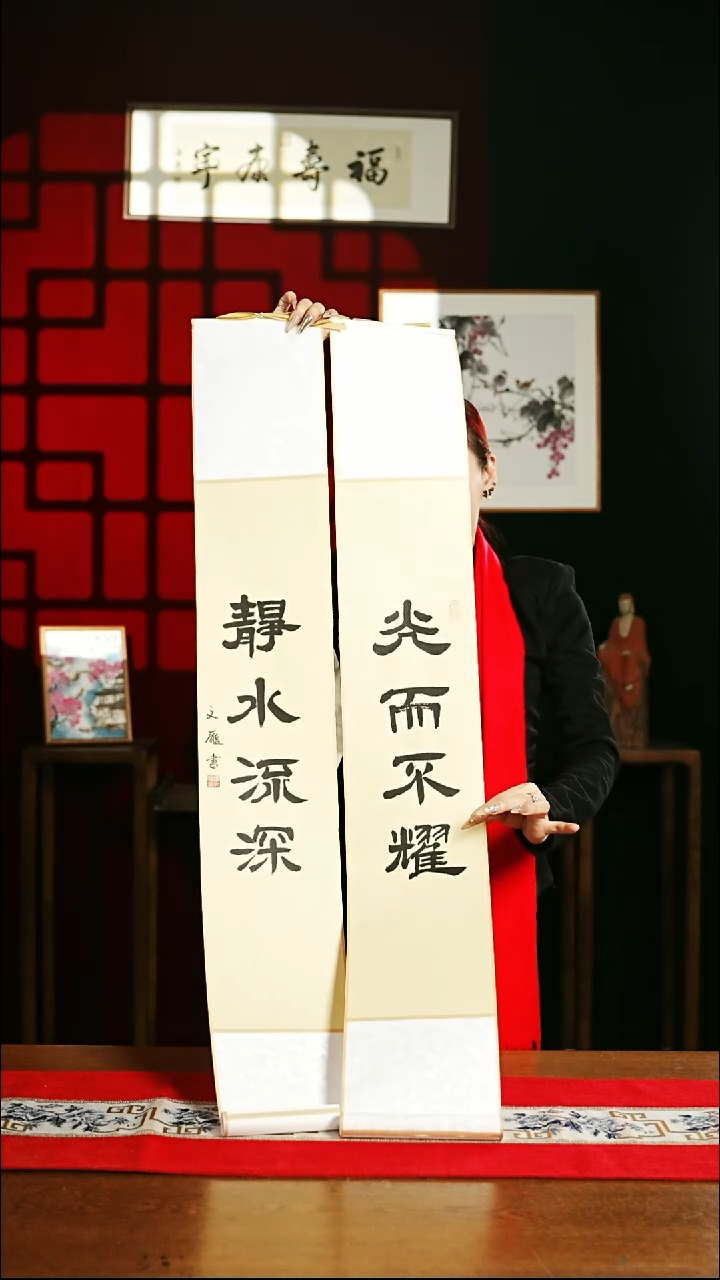 福壽康寧
光而不耀
靜水流深
文雁書